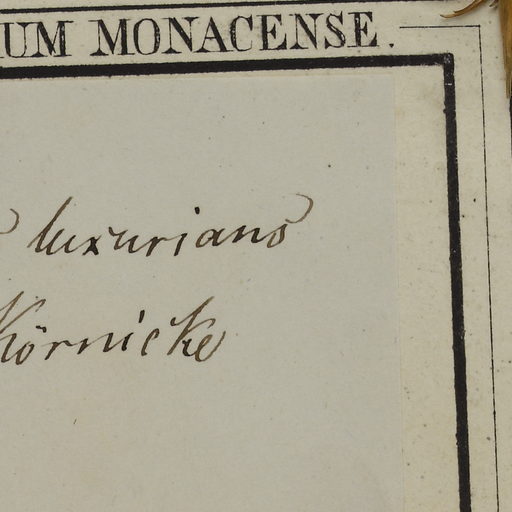 UM MONACENSE.
luxurians
Körnicke